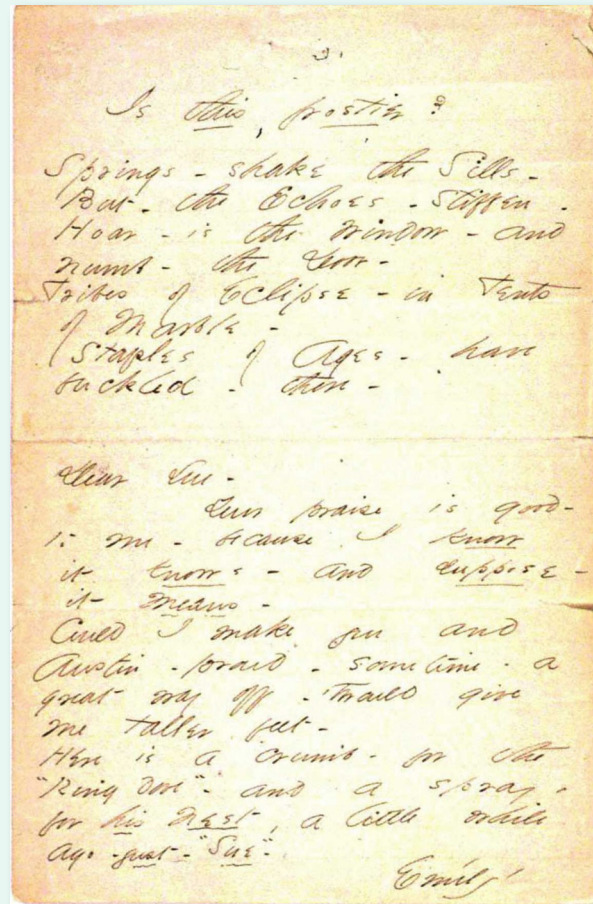 Is this, frostier?
Springs - shake the Sills -
But - the Echoes - stiffen -
Hoar - is the Window - and
numb - the Door -
Tribes of Eclipse - in Tents
of Marble -
Staples of Ages - have
buckled - there -
Dear Sue -
Your praise is good -
to me - because I know
it knows - and suppose -
it means -
Could I make you and
Austin - proud - sometime - a
great way off - 'twould give
me taller feet -
Here is a crumb - for the
"Ring dove" - and a spray -
for his Nest, a little while
ago - just - "Sue".
Emily.